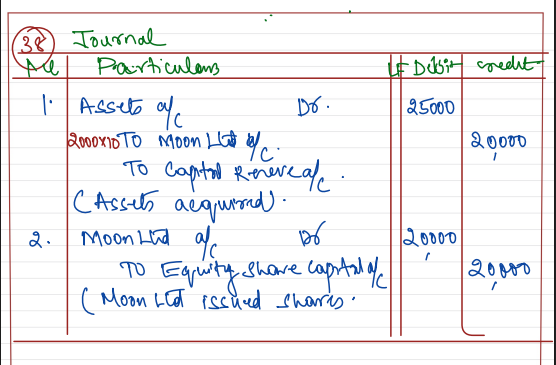 38 Journal
Particulars LF Debit credit
1. Assets a/c Dr. 25000
2000x10 TO Moon Ltd a/c. 20,000
To Capital Reserve a/c.
(Assets acquired).
2. Moon Ltd a/c Dr 20,000
TO Equity share capital a/c 20,000
(Moon Ltd issued shares.